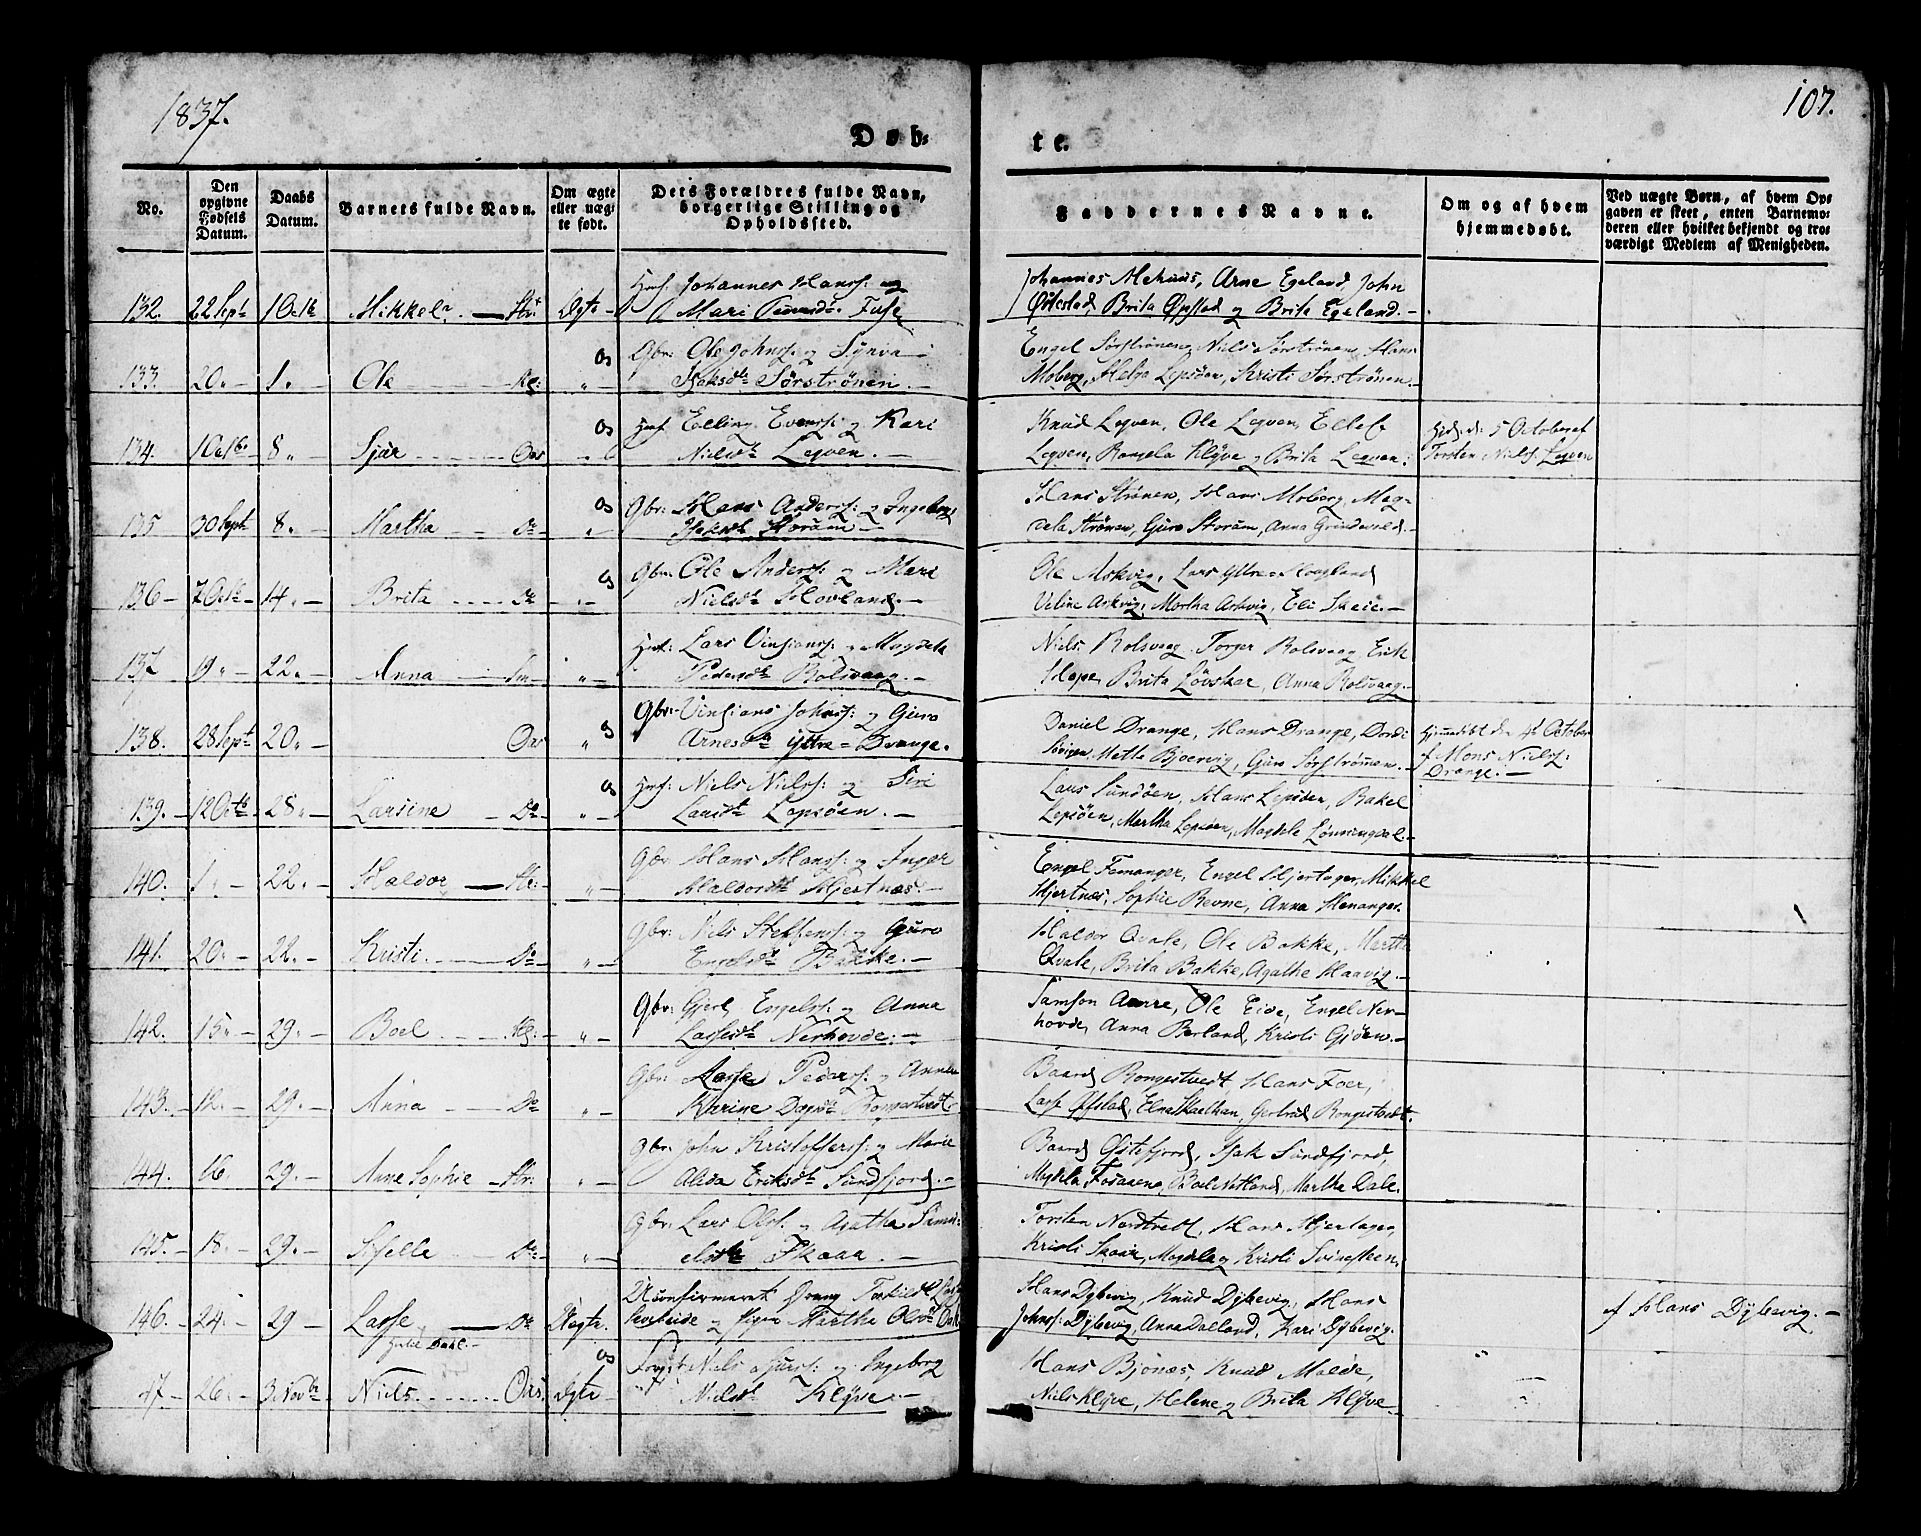 1837.
107.
Døb-
te.
No.
Den opgivne Fødsels Datum.
Daabs Datum.
Barnets fulde Navn.
Om ægte eller uægte født.
Dets Forældres fulde Navn, borgerlige Stilling og Opholdssted.
Faddernes Navne.
Om og af hvem hjemmedøbt.
Ved uægte Børn, af hvem Opgaven er skeet, enten Barnemoderen eller hvilket bekjendt og troværdigt Medlem af Menigheden.
132. 22 Sept 1 Octb Mikkel Str: Ægte Huf. Johannes Hanss: og
Mari Fuse
Johannes Mehuus, Arne Egeland, John
Østestad, Brita Øpstad og Brita Egeland.
133. 20. 1. Ole Os Gbr: Ole Johnss: og Synva
Isaksdtr Sørstrønen.
Engel Sørstrønen, Niels Sørstrønen, Hans
Moberg, Helga Lepsøen, Kristi Sørstrønen.
134. 1 Octbr 8. Sjur Oos Os Huf. Elling Evenss: og Kari
Nielsdtr Legven.
Knud Legven, Ole Legven, Ellef
Legven, Rangela Klyve og Brita Legven.
Hjd: d: 5 October af
Torsten Nielss: Legven
135 30 Sept 8. Martha Do Os Gbr: Hans Anderss: og Ingeborg
Storum
Hans Strønen, Hans Moberg, Mag-
dela Strønen, Guro Storum, Anna Grindevold.
136 7 Octb 14. Brita Do Os Gbr: Ole Anderss: og Mari
Nielsdtr Hovland.
Ole Askvig, Lars Yttre Hougland
Veline Askvig, Martha Askvig, Eli Skeie.
137 9 22. Anna Huf: Lars Vinsianss: og Magdela
Pedersdtr Rolsvaag.
Niels Rolsvaag, Torger Rolsvaag, Erik
Hope, Brita Løvskar, Anna Rolsvaag.
138. 28 Sept 20. Oos Os Gbr: Vinsians Johnss: og Guro
Arnesdtr Yttre-Drange.
Daniel Drange, Hans Drange, Dordi
Søvigen, Metta Bjoervig, Guro Sørstrømen.
Hjemmedøbt den 4de October
af Mons Nielss:
Drange.
139. 12 Octb 28. Larsine Do Os Huf: Niels Nielss: og Siri
Larsdtr Lepsøen.
Lars Sundøen, Hans Lepsøen, Bakel
Lepsøen, Martha Lepsøen, Magdele Lønningdal.
140. 1. 22. Haldor Str: Gbr: Hans Hanss: og Inger
Haldorsdtr Hjertnæs.
Engel Femanger, Engel Hjertager, Mikkel
Hjertnæs, Sophie Revne, Anna Henanger.
141. 20. 22. Kristi Do Gbr: Niels Steffenss: og Guro
Engelsdtr Bakke.
Haldor Qvale, Ole Bakke, Martha
Qvale, Brita Bakke, Agathe Haavig.
142. 15. 29. Boel Gbr: Gjert Engelss: og Anna
Lassesdtr Nerhovde.
Samson Aarre, Ole Eide, Engel Ner-
hovde, Anna Berland, Kristi Gjøen.
143. 12. 29. Anna Do Gbr: Lasse Pederss: og Anna
Karine Rongestvedt
Baard Rongestvedt Hans Foer,
Lasse Øfstad, Elna Skaathun, Gertrud Rongestvedt.
144. 16. 29. Anne Sophie Str: Gbr: John Kristofferss: og Marie
Alida Eriksdtr Sundfjord.
Baard Østefjord, Isak Sundfjord,
Magdela Fosaaena, Boel Netland, Martha Dale.
145. 18. 29. Sisselle Do: Gbr: Lars Olss: og Agatha Samu-
elsdtr Skaar.
Torsten Nordtvedt, Hans Hjertager,
Kristi Skaar, Magdela og Kristi Svinesteen.
146. 24. 29 Lasse Do Uægte. Uconfirmeret Dreng Torkild
og Pigen Martha Olsdtr Dahl
Hans Dybevig, Knud Dybevig, Hans
Johnss: Dybevig, Anna Dalland, Kari Dybevig.
af Hans Dybevig.
47 26. 3 Novbr Niels Oos. Ægte Os Niels Sjurss: og Ingeborg
Nielsdtr Klyve.
Hans Bjonæs, Knud Malde,
Niels Klyve, Helene og Brita Klyve.